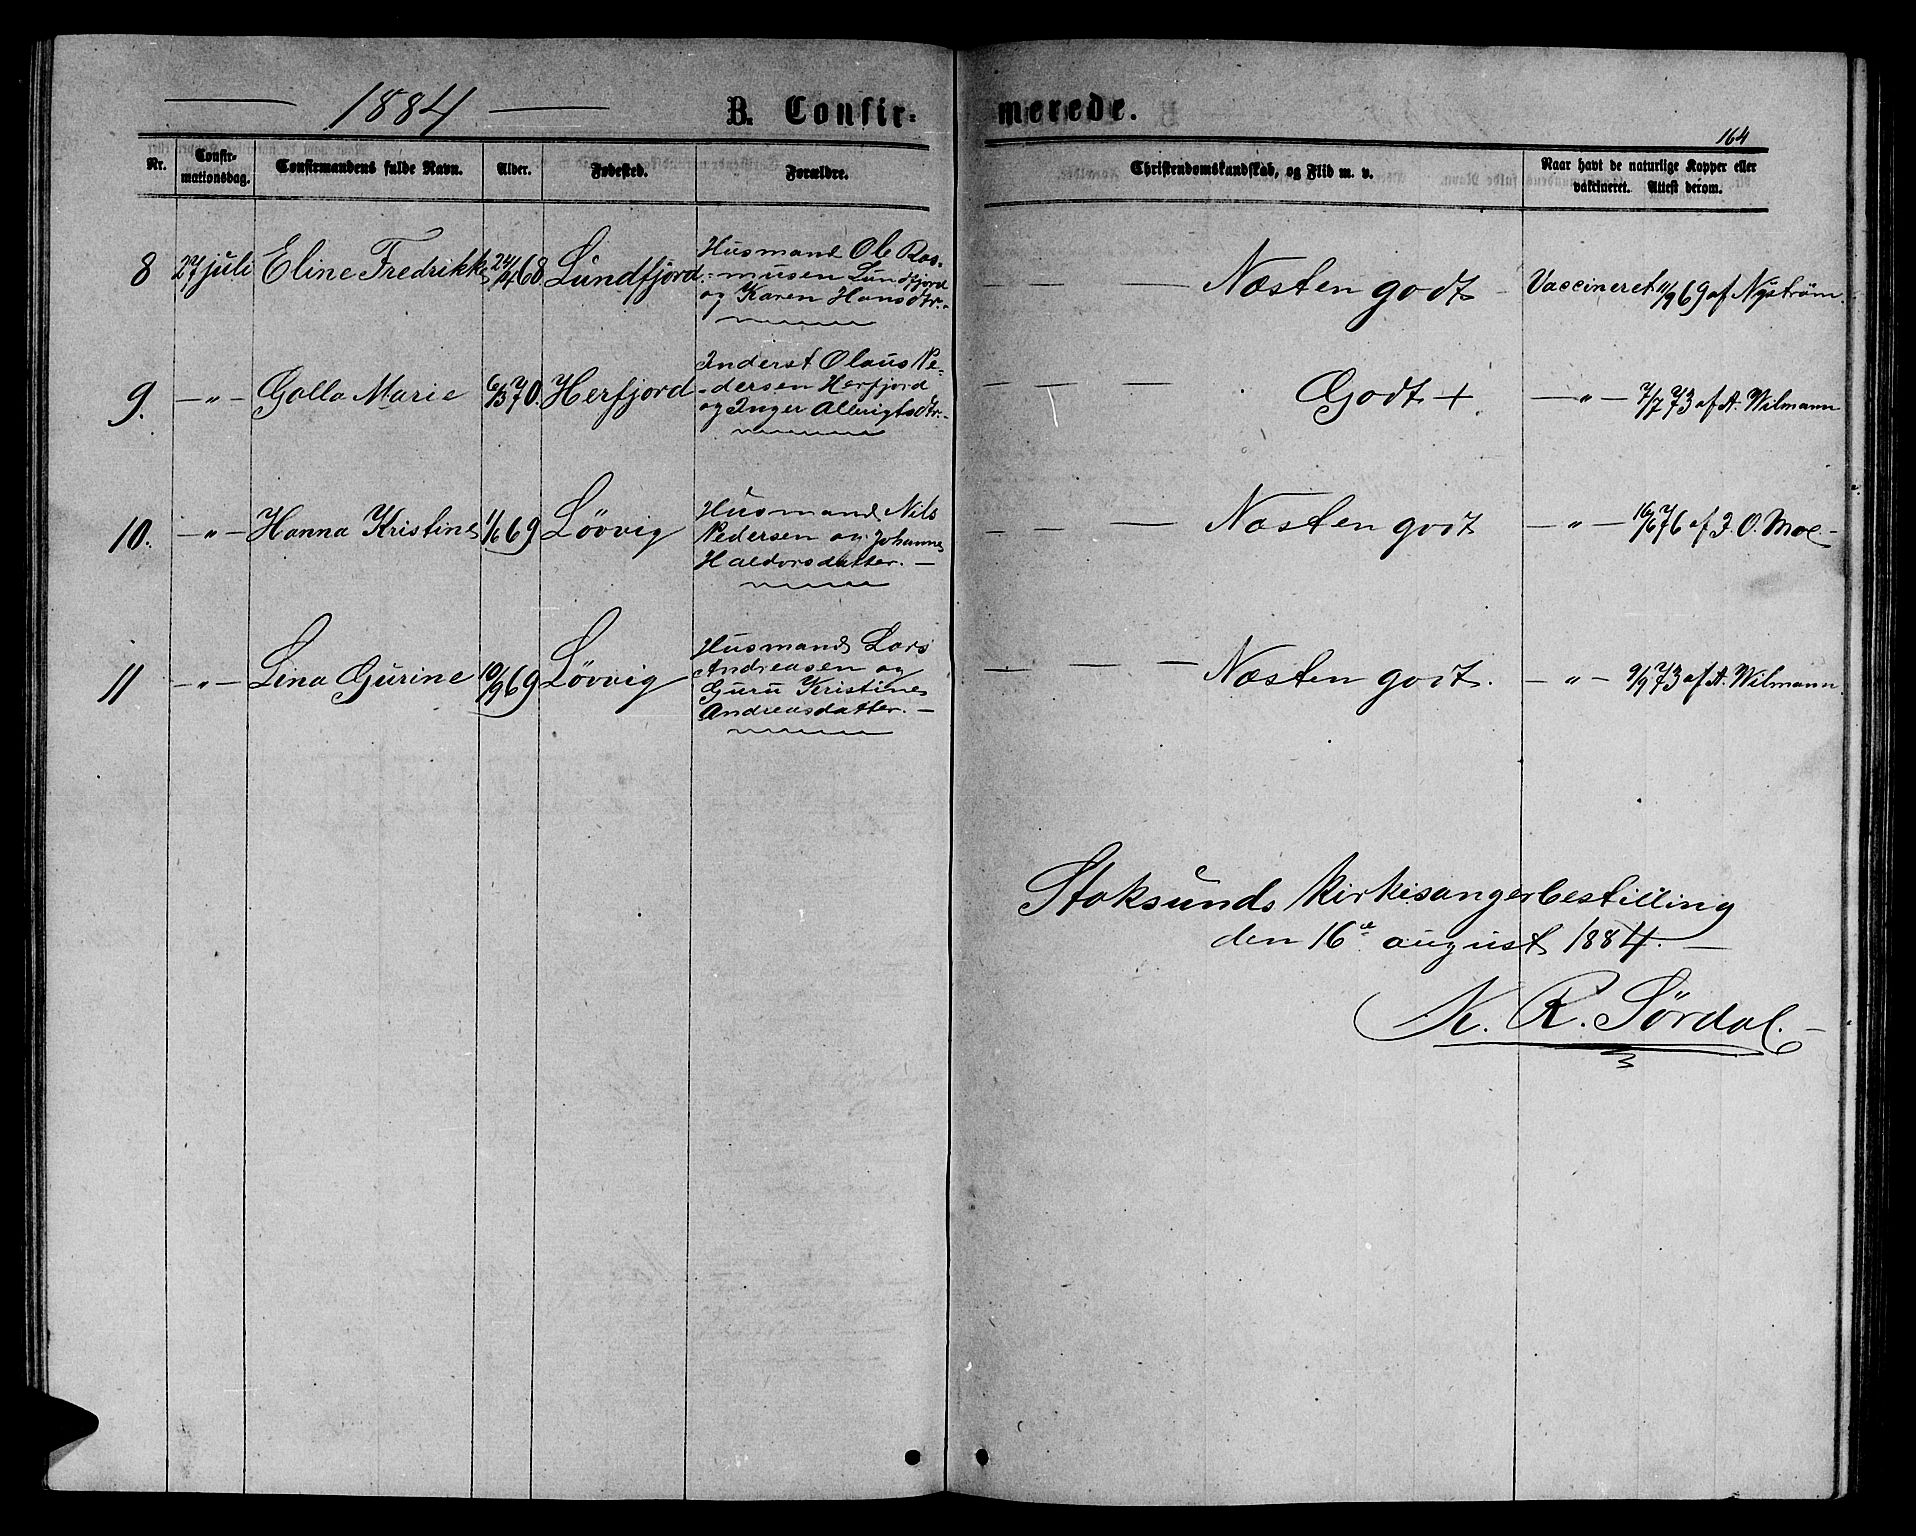 1884 B. Confir- merede.
164
Nr. Confir- Confirmandens fulde Navn. Alder. Fødested. Forældre. Christendomskundskab, og Flid m. v. Naar havt de naturlige Kopper eller
mationsdag. vakcineret. Attest derom.
8 27 juli Eline Fredrikke 24/4 68 Lundfjord Husmand Ole Ras- Næsten godt Vaccineret 11/9 69 af Nyström
-musen Lundfjord
og Karen Hansdtr.
9. —"— Golla Marie 6/3 70. Herfjord Inderst Olaus Pe- Godt + —"— 7/7 73 af A. Wilmann
-dersen Herfjord
og Inger Albrigtsdtr.
10. —"— Hanna Kristine 1/6 69 Lövvig Husmand Nils Næsten godt —"— 16/6 76 af J. O. Moe.
Pedersen og Johanne
Haldorsdatter. —
11 —"— Lina Gurine 10/9 69 Lövvig Husmand Lars Næsten godt. —"— 9/9 73 af A. Wilmann.
Andreasen og
Guru Kristine
Andreasdatter. —
Stoksunds kirkesangerbestilling
den 16de august 1884. —
K. R. Sördal. —